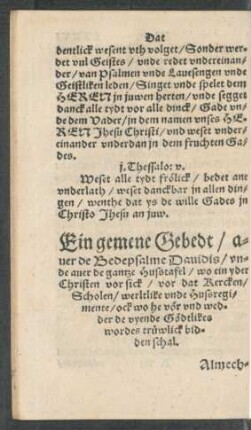 Dat
dentlick wesent vth volget / Sonder wer-
det vul Geistes / vnde redet vndereinan-
der / van Psalmen vnde Lauesengen vnde
Geistliken leden / Singet vnde spelet dem
HEREN in juwen herten / vnde segget
danck alle tydt vor alle dinck / Gade vn-
de dem Vader / in dem namen vnses HE-
REN Jhesu Christi / vnd weset vnder-
einander vnderdan in dem fruchten Ga-
des.
j. Thessalo: v.
Weset alle tydt frölick / bedet ane
vnderlath / weset danckbar in allen din-
gen / wenthe dat ys de wille Gades in
Christo Jhesu an juw.
Ein gemene Gebedt / a-
uer de Bedepsalme Dauidis / vn-
de auer de gantze Husötafel / wo ein yder
Christen vor sick / vor dat Kercken /
Scholen / werltlike vnde Husöregi-
mente / ock wo he vör vnd wed-
der de vyende Gödtlikes
wordes trüwlick bid-
den schal.
Almech-